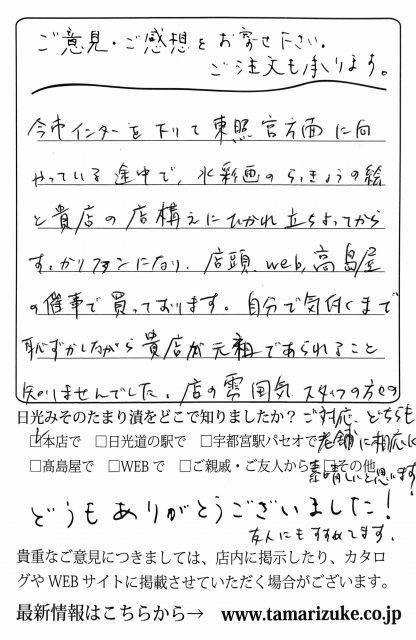 ご意見・ご感想をお寄せ下さい。
ご注文も承ります。
今市インターを下りて東照宮方面に向
やっている途中で、水彩画のらっきょうの絵
と貴店の店構えにひかれ立ちよってから
すっかりファンになり、店頭、web、高島屋
の催事で買っております。自分で気付くまで
恥ずかしながら貴店が元祖であられること
知りませんでした。店の雰囲気、スタッフの方々の
日光みそのたまり漬をどこで知りましたか？ご対応、どちらも
☑本店で □日光道の駅で □宇都宮駅パセオで 老舗に相応に
□髙島屋で □WEBで □ご親戚・ご友人から □その他 素晴しいと思います！
どうもありがとうございました！
友人にもすすめてます。
貴重なご意見につきましては、店内に掲示したり、カタロ
グやWEBサイトに掲載させていただく場合がございます。
最新情報はこちらから→ www.tamarizuke.co.jp